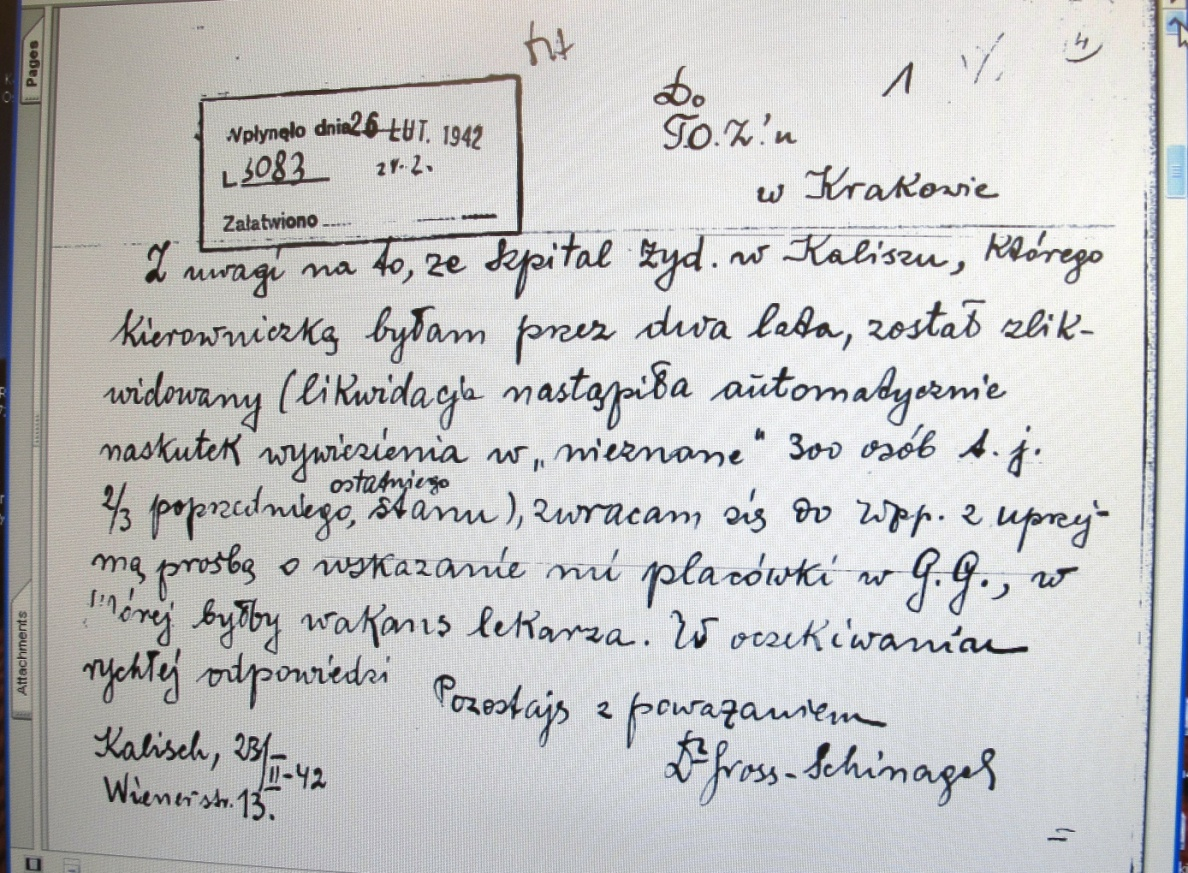 Pages
Attachments
4
1
Wpłynęło dnia 26 LUT. 1942
L 3083
Załatwiono
Do
TO.Z.'u
w Krakowie
Z uwagi na to, że szpital żyd. w Kaliszu, którego
kierowniczką byłam przez dwa lata, został zlik-
widowany (likwidacja nastąpiła automatycznie
naskutek wywiezienia w „nieznane" 300 osób t. j.
ostatniego
2/3 poprzedniego, stanu), zwracam się do Wpp. z uprzej-
mą prośbą o wskazanie mi placówki w G.G., w
której byłby wakans lekarza. W oczekiwaniu
rychłej odpowiedzi
Pozostaję z poważaniem
Dr Gross-Schinagel
Kalisch, 23/II-42
Wienerstr. 13.